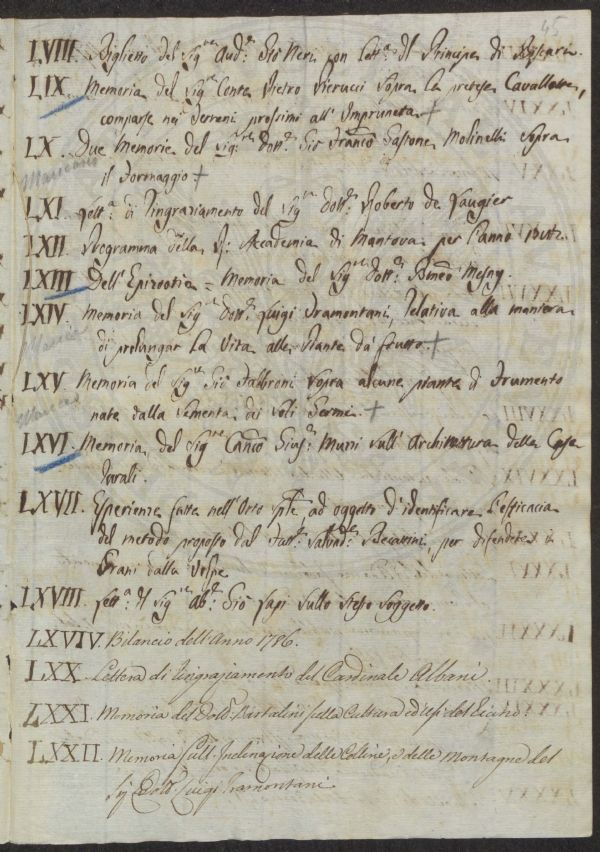 45
LVIII. Biglietto del Sig.re Aud.e Gio Neri con Lett.a del Principe di Biscari.
LIX. Memoria del Sig.re Conte Pietro Pierucci Sopra le pretese Cavallette,
comparse nei Terreni prossimi all' Impruneta +
LX. Due Memorie del Sig.re Dott.e Gio Franc.o Gastone Molinelli Sopra
il Formaggio +
LXI. Lett.a di Ringraziamento del Sig.re Dott.e Roberto de Laugier
LXII. Programma della R. Accademia di Mantova per l'anno
LXIII. Dell'Epizootia = Memoria del Sig.re Dott.e Mesny.
LXIV. Memoria del Sig.re Dott.e Luigi Tramontani, Relativa alla maniera
di prolungar la Vita alle Piante da frutto +
LXV. Memoria del Sig.re Gio Fabbroni Sopra alcune piante di Frumento
nate dalla Sementa dei soli Germi. +
LXVI. Memoria del Sig.re Can.co Gius.e Muni sull' Architettura delle Case
LXVII. Esperienze fatte nell'Orto Sp.le ad oggetto d'identificare l'efficacia
del metodo proposto dal per difendere i
Grani dalla Volpe
LXVIII. Lett.a del Sig.re Ab.e Gio Lapi sullo Stesso Soggetto.
LXVIV. Bilancio dell'Anno 1786.
LXX. Lettera di Ringraziamento del Cardinale Albani.
LXXI. Memoria del Dott.e Bartalini sulla Cultura ed usi del
LXXII. Memoria sull' Inclinazione delle Colline, e delle Montagne del
Sig. Dott.e Luigi Tramontani